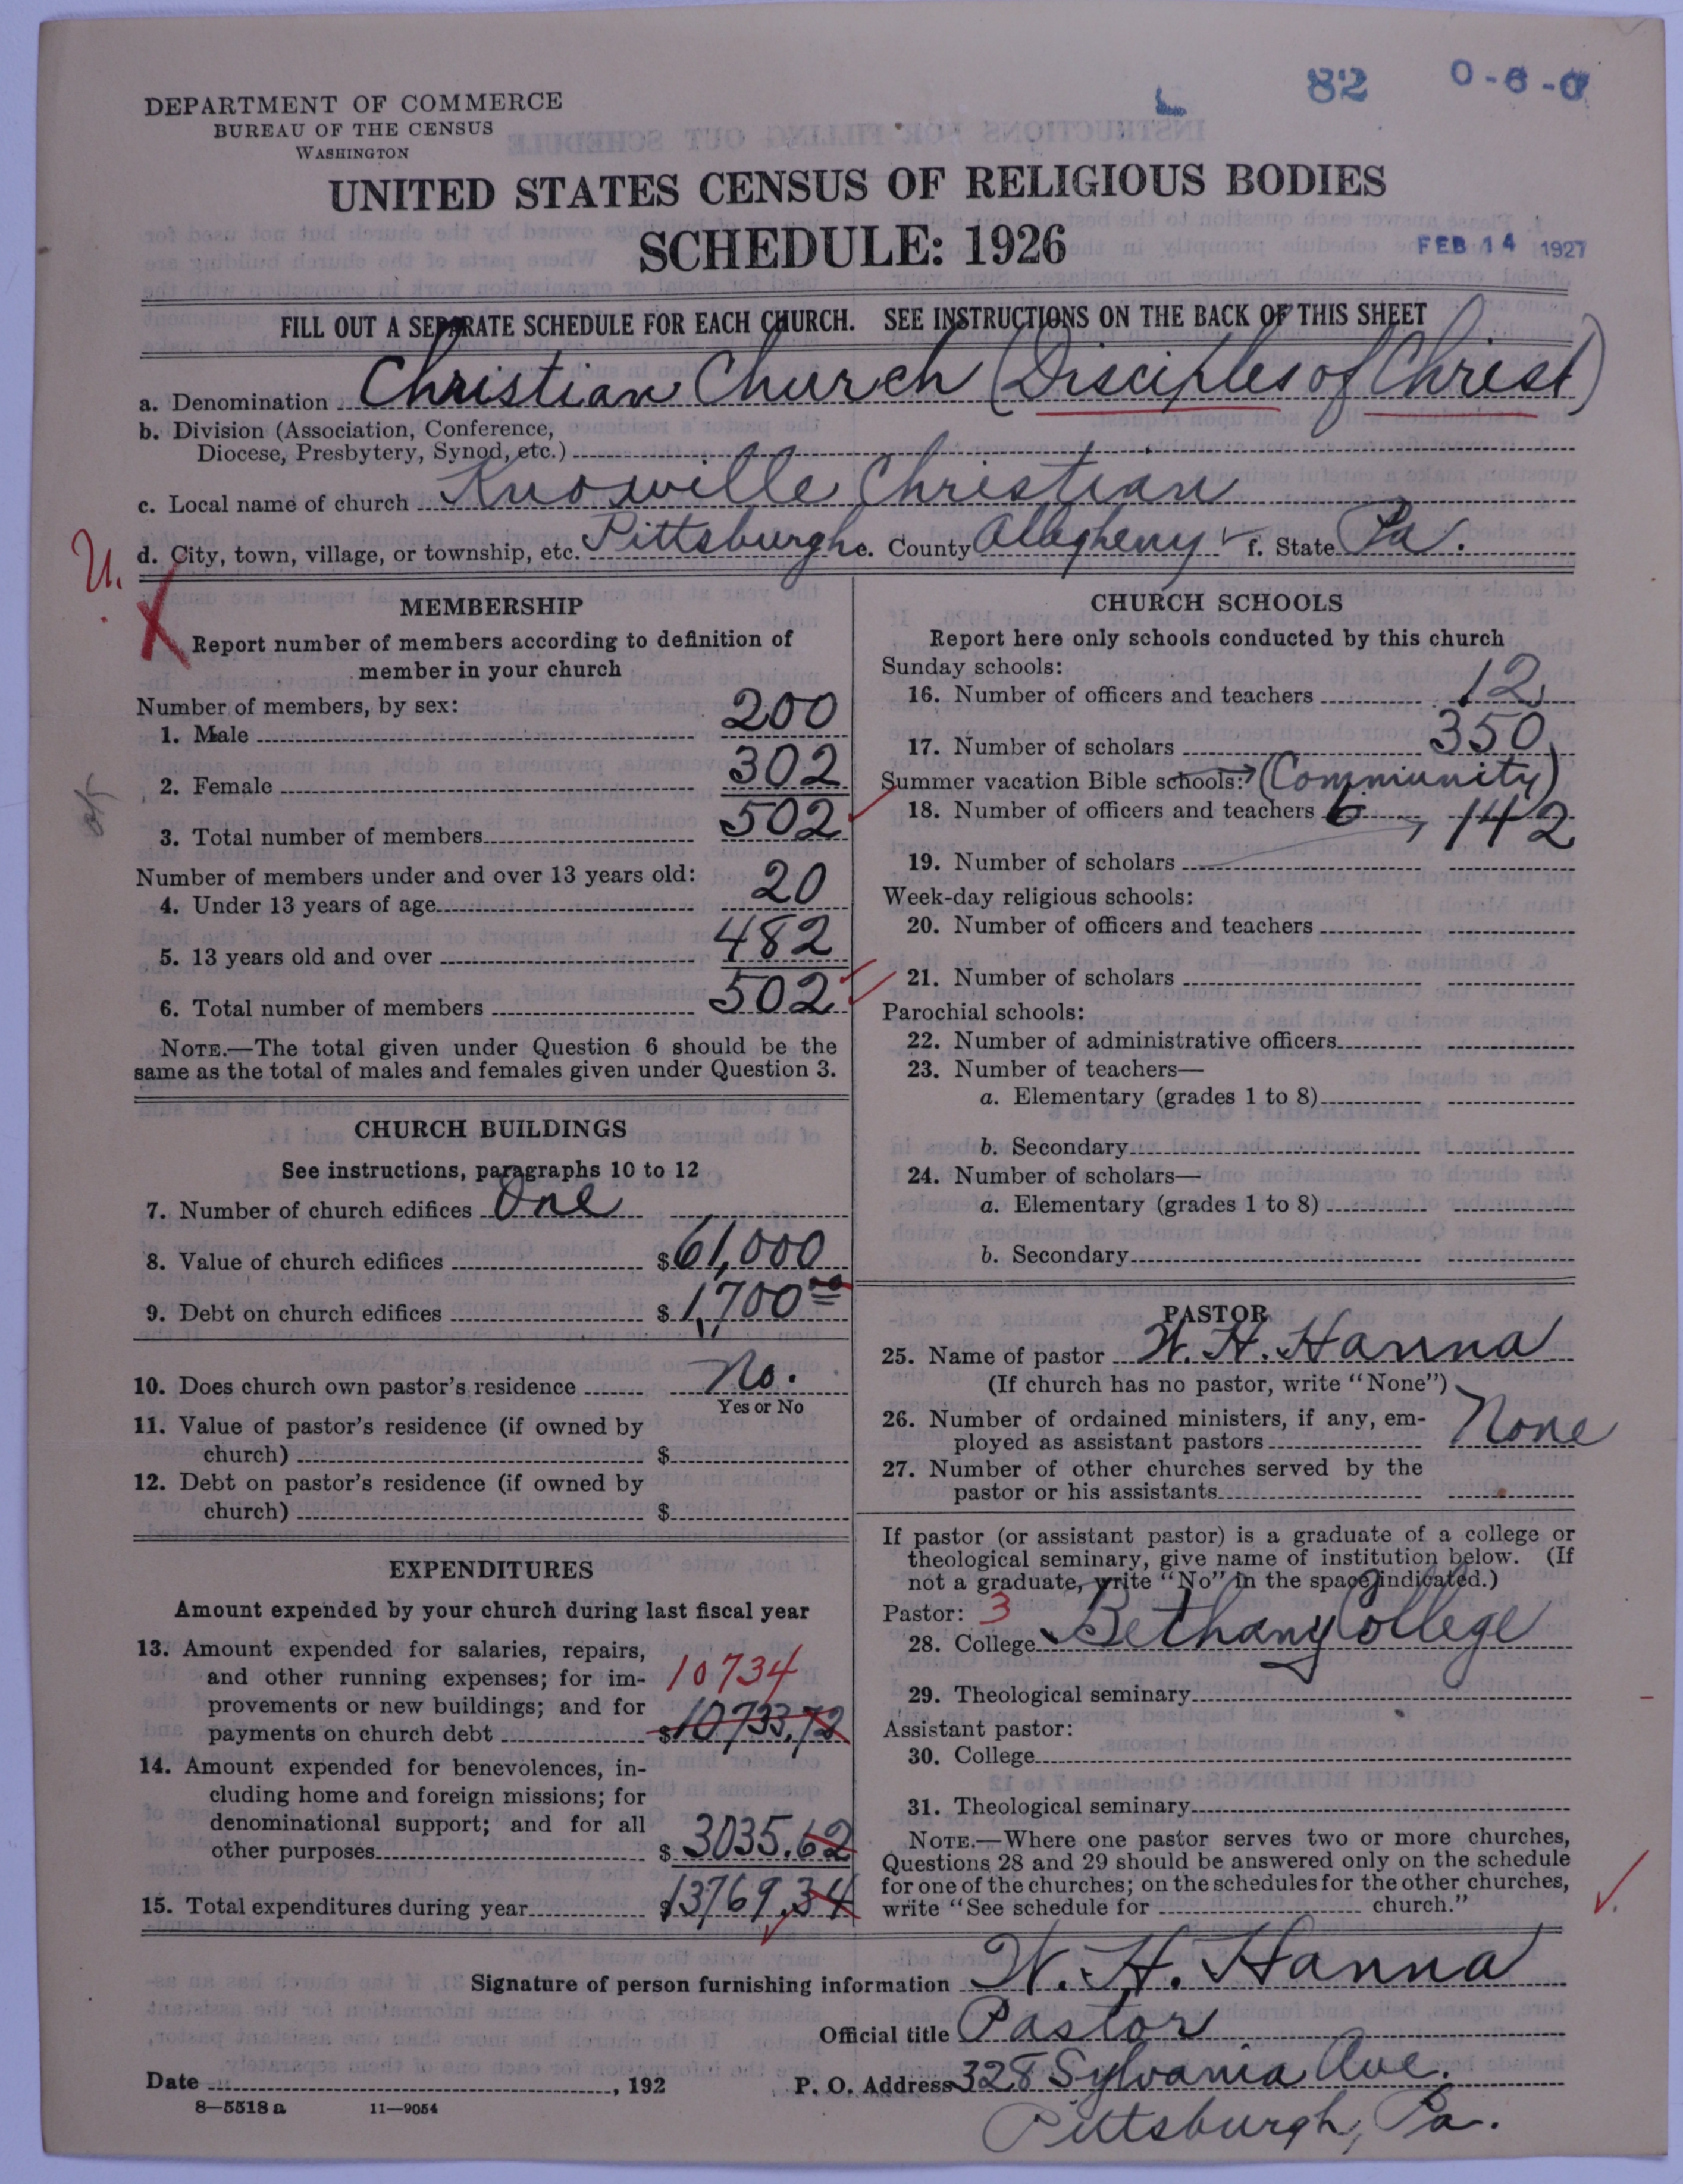 82 0-6-0
DEPARTMENT OF COMMERCE
BUREAU OF THE CENSUS
WASHINGTON
UNITED STATES CENSUS OF RELIGIOUS BODIES
SCHEDULE: 1926
FEB 14 1927
FILL OUT A SEPARATE SCHEDULE FOR EACH CHURCH. SEE INSTRUCTIONS ON THE BACK OF THIS SHEET
a. Denomination Christian Church (Disciples of Christ)
b. Division (Association, Conference,
Diocese, Presbytery, Synod, etc.)
c. Local name of church Knoxville Christian
d. City, town, village, or township, etc. Pittsburgh e. County Allegheny f. State Pa.
U.
X
MEMBERSHIP
Report number of members according to definition of
member in your church
Number of members, by sex:
1. Male 200
2. Female 302
3. Total number of members 502
Number of members under and over 13 years old:
4. Under 13 years of age 20
5. 13 years old and over 482
6. Total number of members 502
NOTE.—The total given under Question 6 should be the
same as the total of males and females given under Question 3.
CHURCH BUILDINGS
See instructions, paragraphs 10 to 12
7. Number of church edifices One
8. Value of church edifices $61,000
9. Debt on church edifices $1,700 00
10. Does church own pastor's residence No.
Yes or No
11. Value of pastor's residence (if owned by
church) $
12. Debt on pastor's residence (if owned by
church) $
EXPENDITURES
Amount expended by your church during last fiscal year
13. Amount expended for salaries, repairs,
and other running expenses; for im- 10734
provements or new buildings; and for
payments on church debt $10,733.72
14. Amount expended for benevolences, in-
cluding home and foreign missions; for
denominational support; and for all
other purposes $3035.62
15. Total expenditures during year $13769.34
CHURCH SCHOOLS
Report here only schools conducted by this church
Sunday schools:
16. Number of officers and teachers 12
17. Number of scholars 350
Summer vacation Bible schools: (Community)
18. Number of officers and teachers 6 142
19. Number of scholars
Week-day religious schools:
20. Number of officers and teachers
21. Number of scholars
Parochial schools:
22. Number of administrative officers
23. Number of teachers—
a. Elementary (grades 1 to 8)
b. Secondary
24. Number of scholars—
a. Elementary (grades 1 to 8)
b. Secondary
PASTOR
25. Name of pastor W. H. Hanna
(If church has no pastor, write "None")
26. Number of ordained ministers, if any, em-
ployed as assistant pastors None
27. Number of other churches served by the
pastor or his assistants
If pastor (or assistant pastor) is a graduate of a college or
theological seminary, give name of institution below. (If
not a graduate, write "No" in the space indicated.)
Pastor: 3
28. College Bethany College
29. Theological seminary
Assistant pastor:
30. College
31. Theological seminary
NOTE.—Where one pastor serves two or more churches,
Questions 28 and 29 should be answered only on the schedule
for one of the churches; on the schedules for the other churches,
write "See schedule for church."
Signature of person furnishing information W. H. Hanna
Official title Pastor
Date , 192
P. O. Address 328 Sylvania Ave.
Pittsburgh, Pa.
8—5518 a 11—9054